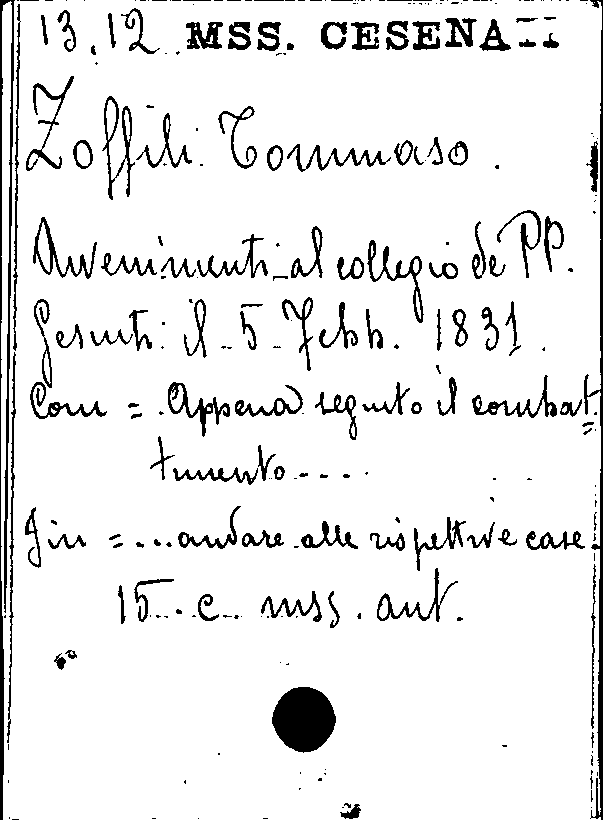 13.12 MSS. CESENATI
Zoffili Tommaso.
Avvenimenti al collegio de PP.
Gesuiti il 5 Febb. 1831.
Com = Appena seguito il combat=
timento....
Fin = ...andare alle rispettive case.
15. c. mss. aut.